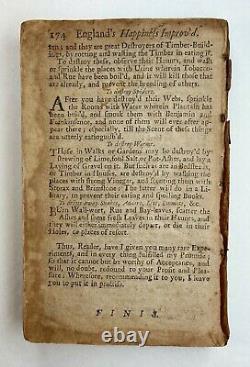 174 England's Happiness Improv'd.
tens, and they are great Destroyers of Timber-Build-
ings, by rotting and wasting the Timber in eating it.
To destroy these, observe their Haunts, and wash
or sprinkle the places with Urine wherein Tobacco
and Rue have been boil'd, and it will kill those that
are already, and prevent the breeding of others.
To destroy Spiders.
After you have destroy'd their Webs, sprinkle
the Rooms with Water wherein Plantain has
been boil'd, and smoak them with Benjamin and
Frankinsence, and none of them will ever after ap-
pear there; especially, till the Scent of these things
are utterly extinguish'd.
To destroy Worms.
Those in Walks or Gardens may be destroy'd by
strowing of Lime, fossil Salt or Pot-Ashes, and by
Laying of Gravel on it. But such as are in Wainscot,
or Timber in Houses, are destroy'd by washing the
places with strong Vinegar, and smoaking them with
Storax and Brimstone: The latter will do in a Li-
brary, to prevent their eating and spoiling Books.
To drive away Snakes, Adders, Efts, Emmets, &c.
Burn Wall-wort, Rue and Bay-leaves, scatter the
Ashes and some fresh Leaves in their Haunts, and
they will either immediately depart, or die in their
Holes, or places of resort.
Thus, Reader, have I given you many rare Expe-
riments, and in every thing fulfilled my Promise;
so that it cannot but be worthy of Acceptance, and
will, no doubt, redound to your Profit and Plea-
sure: Wherefore, recommending it to you, I leave
you to put it in practise.
FINIS.